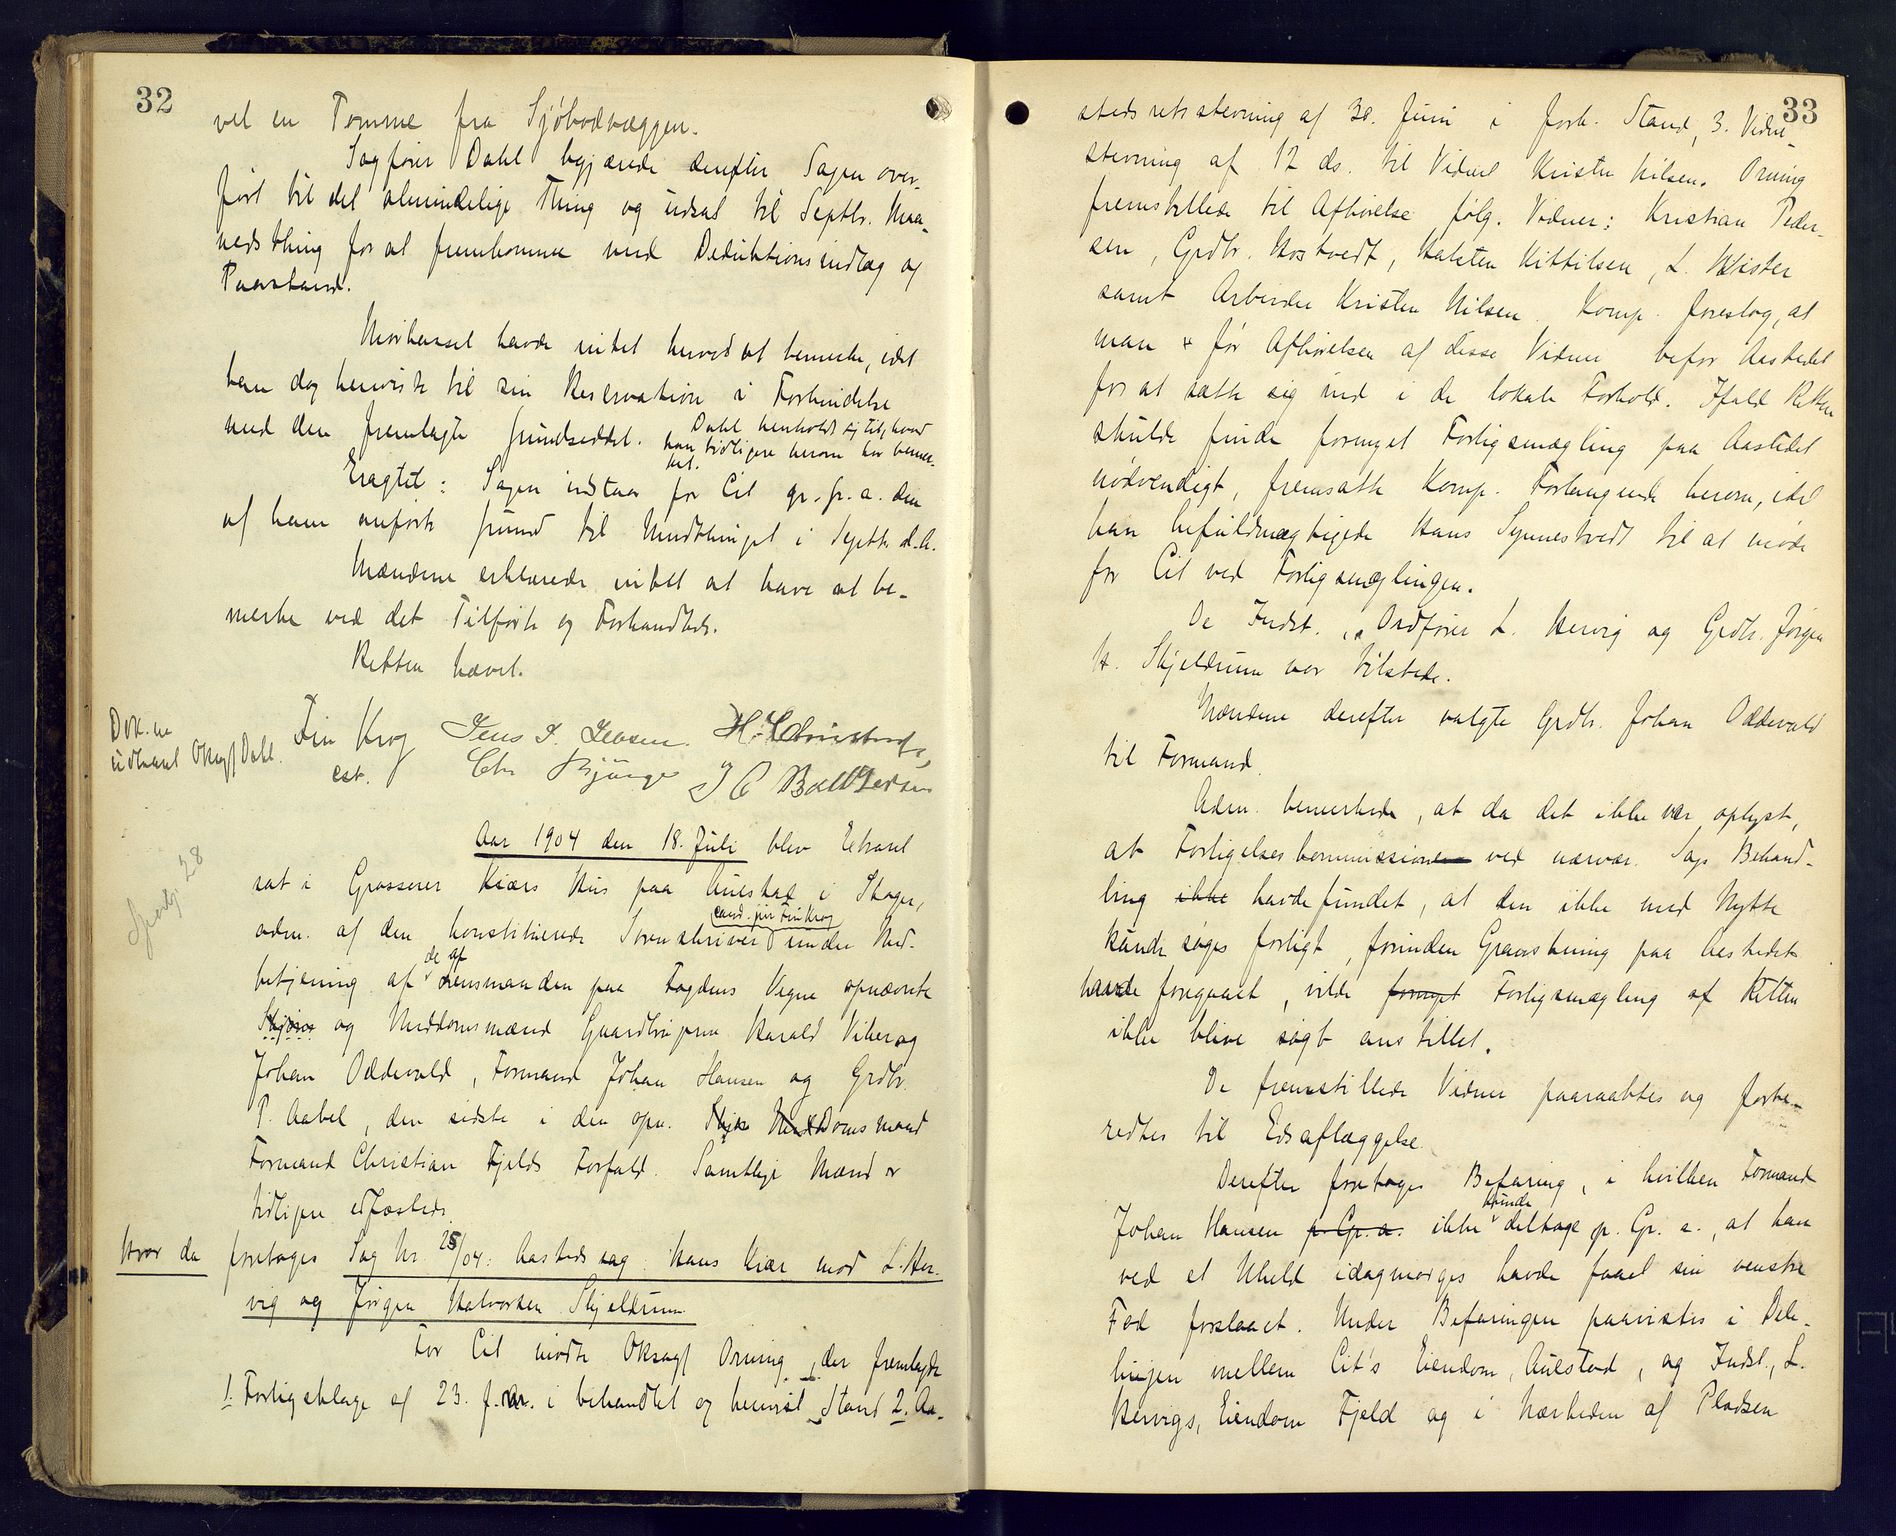 32
vel en Tomme fra Sjöbodvæggen.
Sagfører Dahl begjærede derefter Sagen over-
ført til det almindelige Thing og udsat til Septbr. Maa-
nedsthing for at fremkomme med Deduktionsindlæg og
Paastand.
havde intet herved at bemerke, idet
han dog henviste til sin Reservation i Forbindelse
med den fremlagte Grundseddel. Dahl henholdt sig til, hvad
han tidligere herom har bemer-
ket.
Eragtet: Sagen udstaar for Cit gr. fr. a. den
af ham anførte Grund til Mndthinget i Septbr d.A.
Mændene erklærede intet at have at be-
merke ved det Tilførte og Forhandlede.
Retten hævet.
Dok.ne
udlaant Oksagf Dahl.
Fin Krog
cst.
Jens J. Jensen.
Chr Bjünge
Aar 1904 den 18. Juli blev Extraret
sat i Grosserer Kiærs Hus paa Aulestad i Skoger,
adm. af den konstituerede Sorenskriver cand. jur Fin Krog under Med-
betjening af de af Lensmanden paa Fogdens Vegne opnævnte
Skjøns og Meddomsmænd Gaardbrugerne Harald Viker og
Johan Oddevald, Formand Johan Hansen og Grdbr.
P. Aabel, den sidste i den opn. Skjøns Meddomsmand
Formand Christian Fjelds Forfald. Samtlige Mænd er
tidligere edfæstede.
Hvor da foretoges Sag Nr 28/04: Aastedssag: Hans Kiær mod L. Her-
vig og Jørgen Halvorsen Skjeldrum
For Cit mødte Oksagf Orning, der fremlagde
1. Forligsklage af 23. f. i behandlet og henvist Stand 2. Aa-
33
stedsretsstevning af 30. Juni i fork. Stand, 3. Vidne-
stevning af 12 ds. til Vidnet Kristen Nilsen. Orning
fremstillede til Afhørelse følg. Vidner: Kristian Peder-
sen, Grdbr. Hostvedt, Halsten Kittilsen, L. Kister
samt Arbeider Kristen Nilsen. Komp. foreslog, at
man før Afhørelsen af disse Vidner befor Aastedet
for at sætte sig ind i de lokale Forhold. Ifald Retten
skulde finde fornyet Forligsmægling paa Aastedet
nødvendigt, fremsatte Komp. Forlangende herom, idet
han befuldmægtigede Hans Synnestvedt til at møde
for Cit ved Forligsmæglingen.
De Indst., Ordfører L. Hervig og Grdbr. Jørgen
H. Skjeldrum var tilstede.
Mændene derefter valgte Grdbr. Johan Oddevald
til Formand.
Adm. bemerkede, at da det ikke var oplyst,
at Forligelseskommissionen ved nærvær. Sags Behand-
ling ikke havde fundet, at den ikke med Nytte
kunde søges forligt, forinden Granskning paa Aastedet
havde foregaaet, vilde fornyet Forligsmægling af Retten
ikke blive søgt anstillet.
De fremstillede Vidner paaraabtes og forbe-
redtes til Edsaflæggelse.
Derefter foretoges Befaring, i hvilken Formand
Johan Hansen p. Gr. a. ikke kunde deltage p. Gr. a., at han
ved et Uheld idagmorges havde faaet sin venstre
Fod forslaaet. Under Befaringen paavistes i Dele-
linjen mellem Cit's Eiendom, Aulestad, og Indst., L.
Hervigs, Eiendom Fjeld og i Nærheden af Pladsen